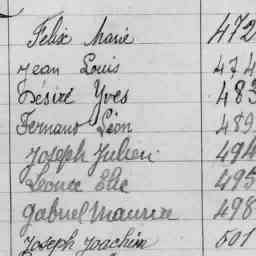 Félix Marie 472
Jean Louis 474
Désiré Yves 483
Fernand Léon 489
Joseph Julien 494
Léonce Elie 495
Gabriel Maurice 498
Joseph Joachim 501